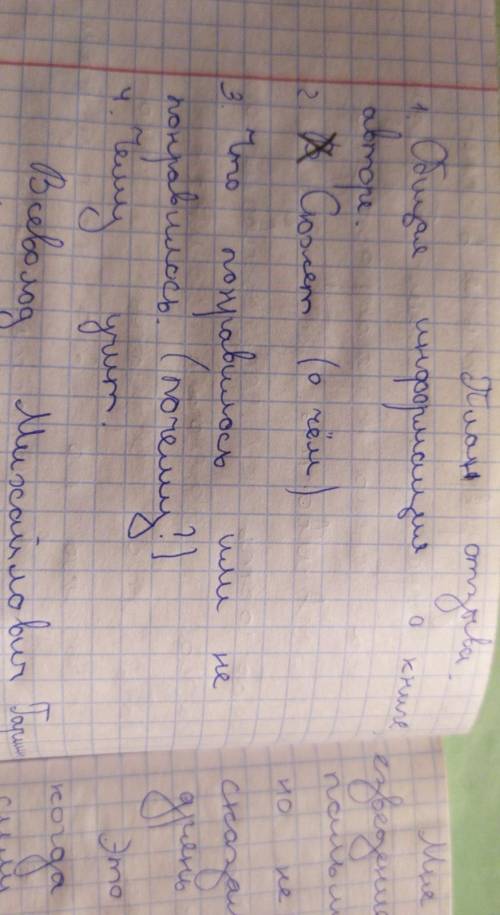 План отзыва.
1. Общая информация о книге,
авторе.
2 Сюжет (о чём)
3. Что понравилось или не
понравилось. (почему?)
4. Чему учит.
Всеволод Михайлович Гаршин
Мне
но не
сказал
очень
Это
когда